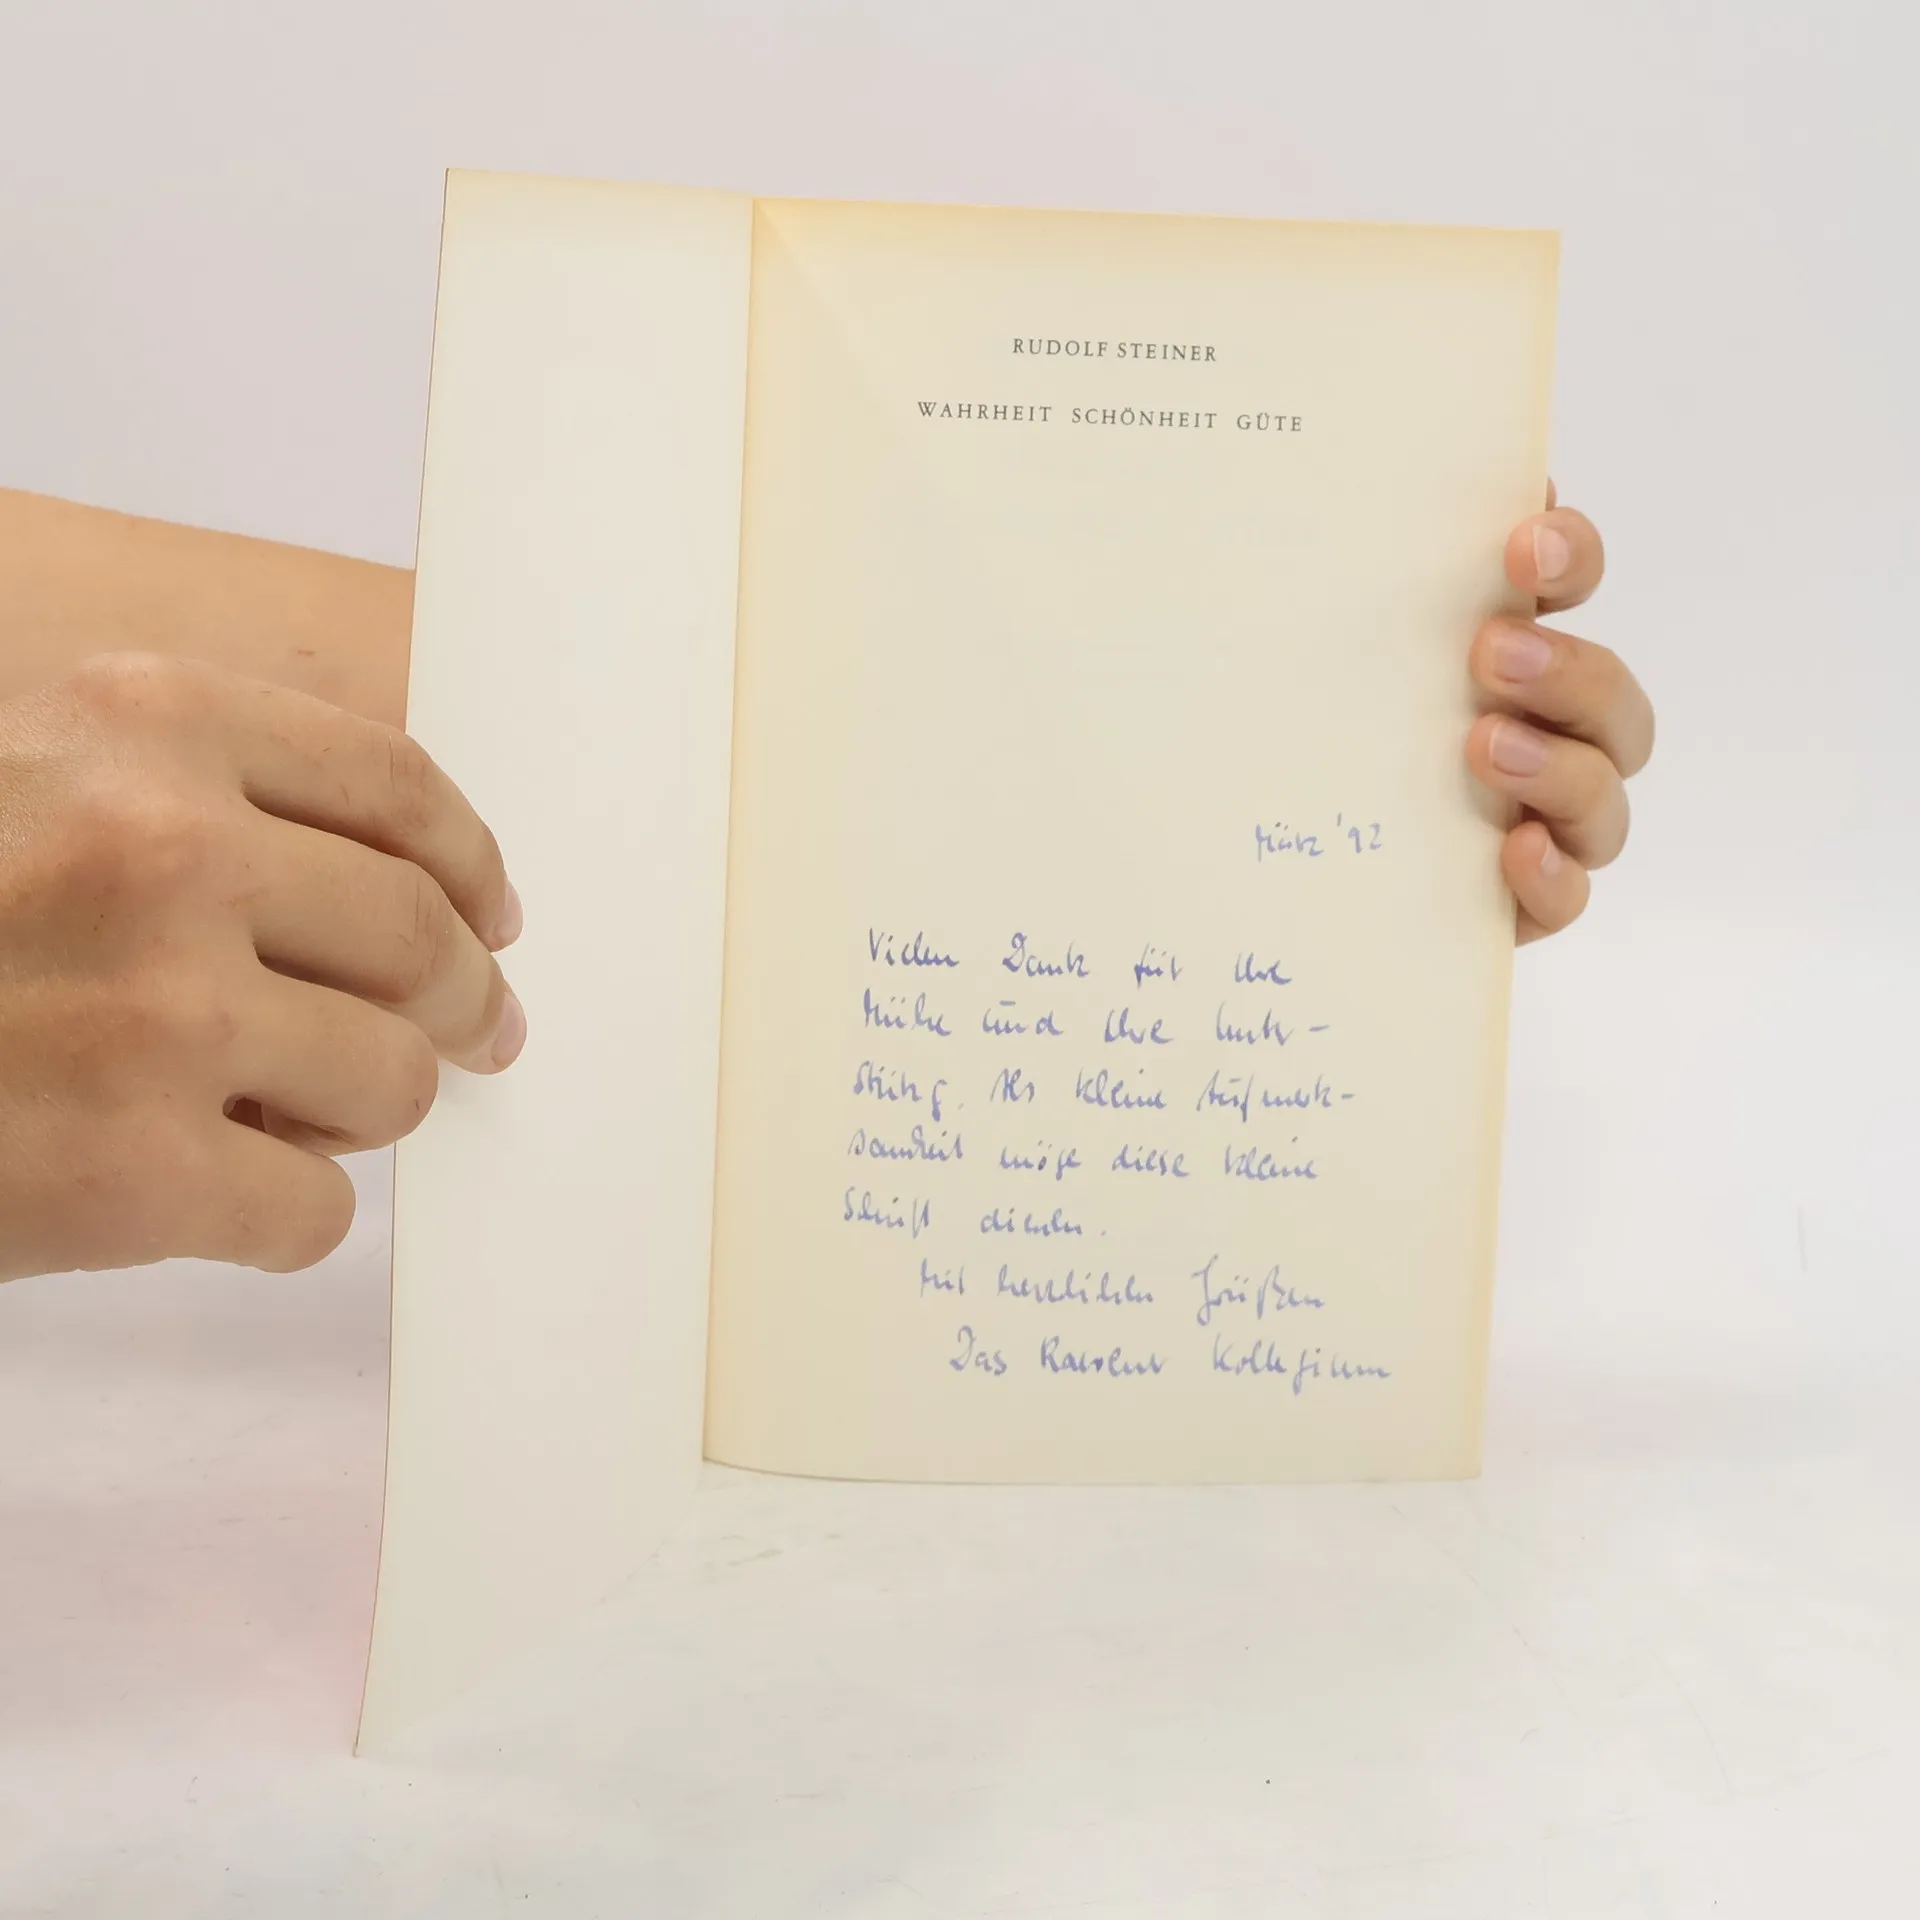 RUDOLF STEINER
WAHRHEIT SCHÖNHEIT GÜTE
März '92
Vielen Dank für Ihre
Mühe und Ihre Unter-
stützg. Als kleine Aufmerk-
samkeit möge diese kleine
Schrift dienen.
Mit herzlichen Grüßen
Das Kollegium